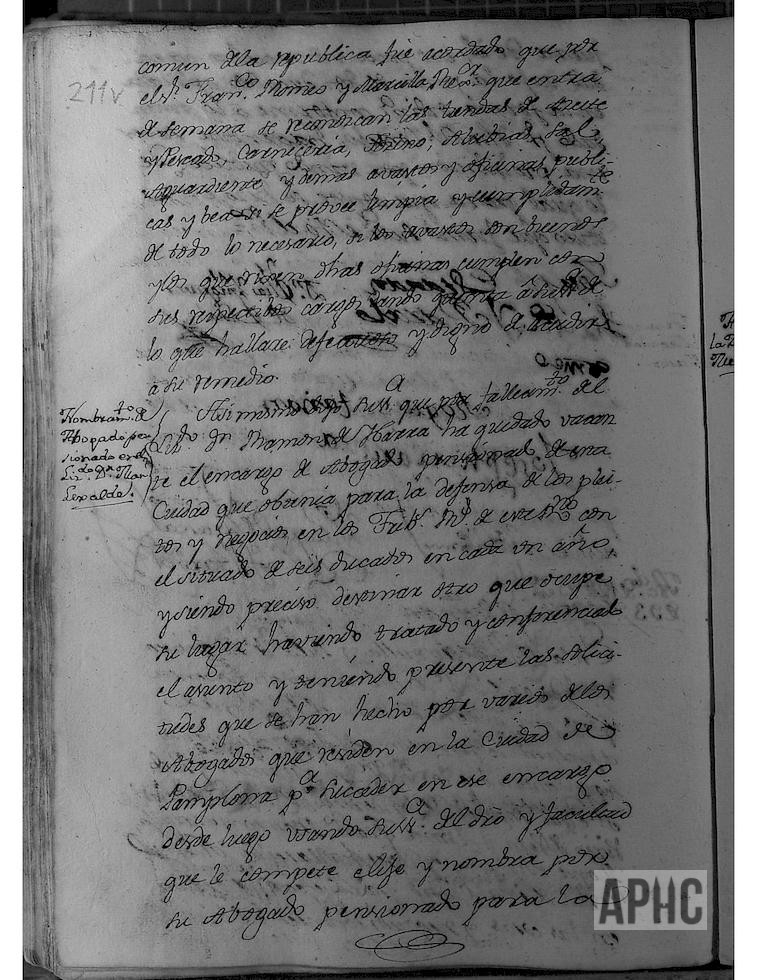 211v
comun dela republica fue acordado que por
el S.r Fran.co Romeo y Marcilla Reg.r que entra
de semana se reconozcan las tiendas de Aceite
y Pescado, Carniceria, Tocino, Alubias, Sal,
Aguardiente y demas avastos y oficinas publi-
cas y vea si se provee limpia y cumplidam.te
de todo lo necesario, si los avastos son buenos
y los que rigen dhas oficinas cumplen con
sus respectibos cargos dando quenta â su S.a de
lo que hallare defectuoso y digno de
a su remedio.
Nombram.to de
Abogado pen-
sionado en el
Lic.do D.n
Lizalde.
Asimismo su S.a que por fallecim.to del
Liz.do D.n Ramon de Ibarra ha quedado vacan
te el encargo de Abogado pensionado de esta
Ciudad que obtenia para la defensa de los plei-
tos y negocios en los Trib.s R.s de este R.no con
el situado de seis ducados en cada un año,
y siendo preciso destinar otro que ocupe
su lugar haviendo tratado y conferenciado
el asunto y teniendo presente las solici-
tudes que se han hecho por varios delos
Abogados que residen en la Ciudad de
Pamplona p.a suceder en ese encargo
desde luego usando su S.a del dro y facultad
que le compete elije y nombra por
su Abogado pensionado para la
APHC